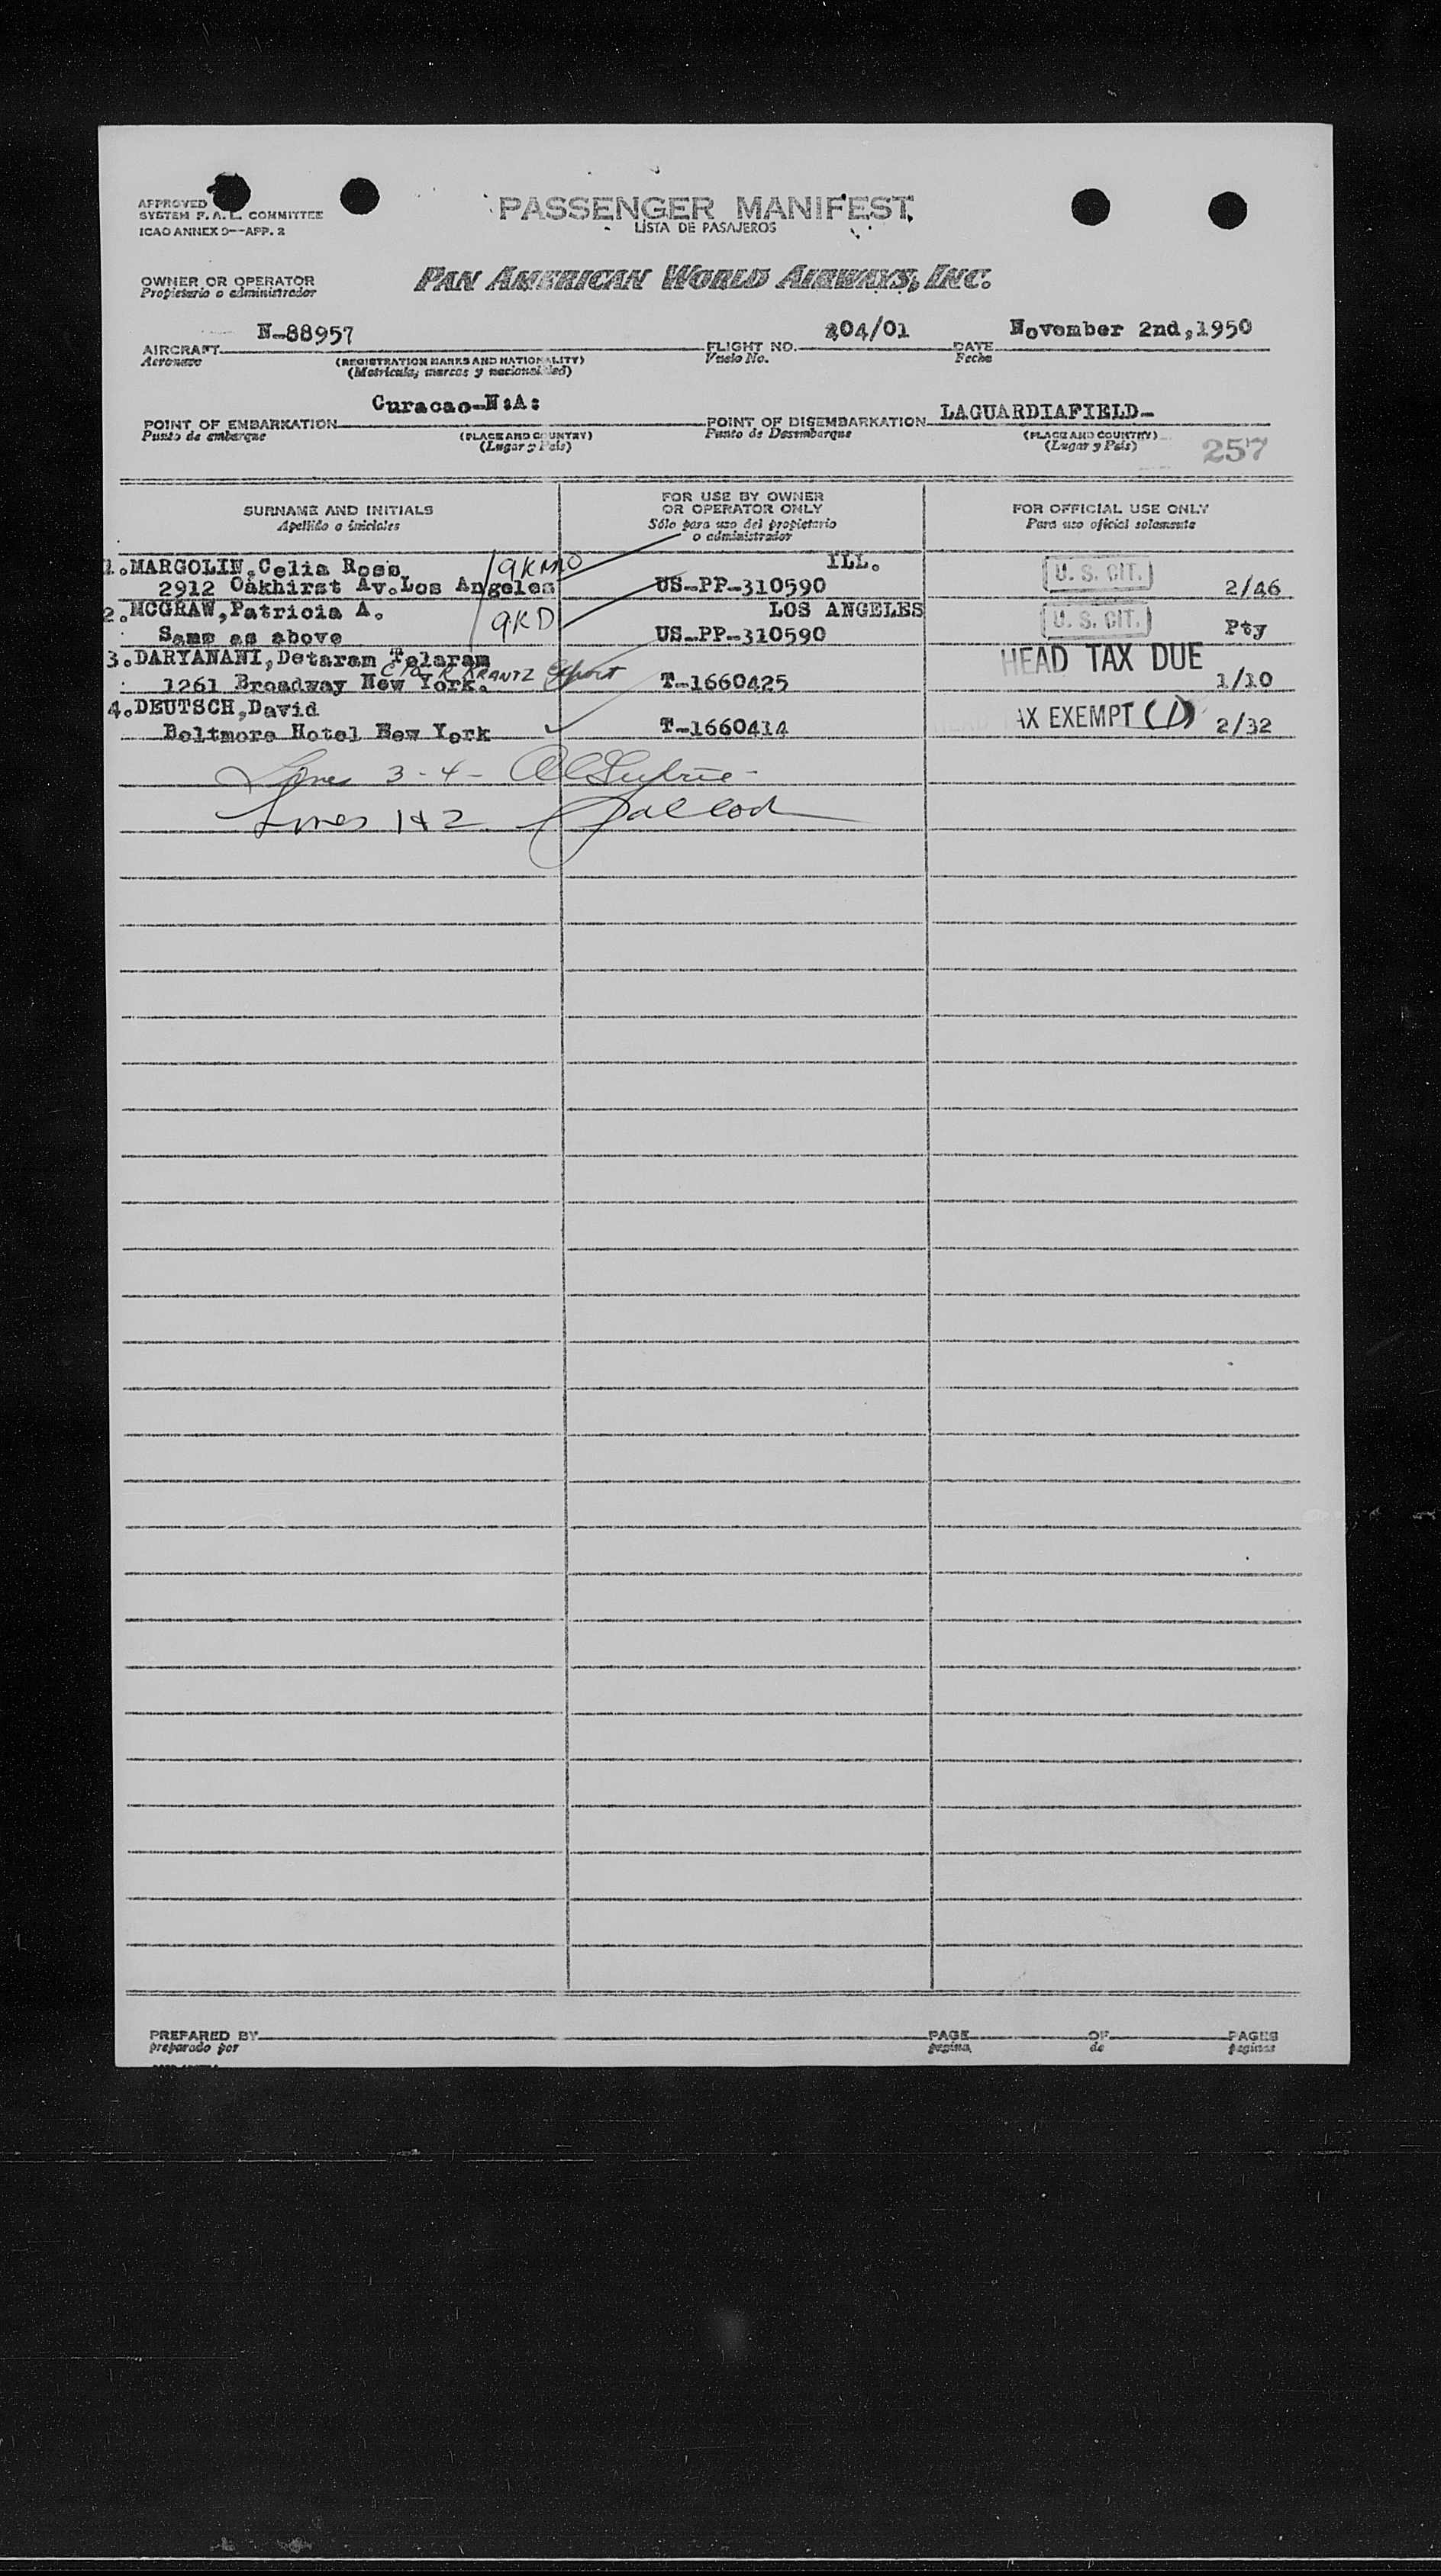 APPROVED
SYSTEM F. A. L. COMMITTEE
ICAO ANNEX 9--APP. 2
PASSENGER MANIFEST
LISTA DE PASAJEROS
OWNER OR OPERATOR
Propietario o administrador
PAN AMERICAN WORLD AIRWAYS, INC.
AIRCRAFT N-88957 FLIGHT NO. 204/01 DATE November 2nd,1950
Aeronave (REGISTRATION MARKS AND NATIONALITY) Vuelo No. Fecha
(Matricula, marcas y nacionalidad)
POINT OF EMBARKATION Curacao-N:A: POINT OF DISEMBARKATION LAGUARDIAFIELD-
Punto de embarque (PLACE AND COUNTRY) Punto de Desembarque (PLACE AND COUNTRY)
(Lugar y País) (Lugar y País) 257
SURNAME AND INITIALS FOR USE BY OWNER OR OPERATOR ONLY FOR OFFICIAL USE ONLY
Apellido o iniciales Sólo para uso del propietario o administrador Para uso oficial solamente
1.MARGOLIN,Celia Ross 9KMO ILL. U. S. CIT.
2912 Oakhirst Av.Los Angeles US-PP-310590 2/46
2.MCGRAW,Patricia A. 9KD LOS ANGELES U. S. CIT.
Same as above US-PP-310590 Pty
3.DARYANANI,Detaram Telaram HEAD TAX DUE
C/O R KRANTZ Export
1261 Broadway New York. T-1660425 1/10
4.DEUTSCH,David AX EXEMPT (1)
Beltmore Hotel New York T-1660414 2/32
Lines 3-4-
Lines 1&2
PREPARED BY PAGE OF PAGES
preparado por página de paginas